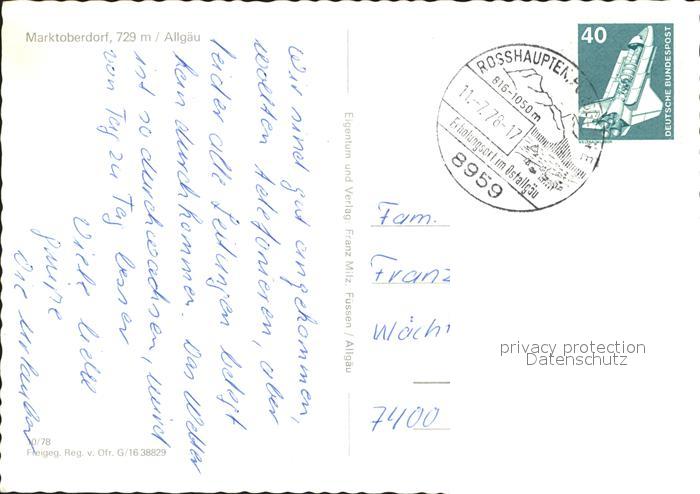 Marktoberdorf, 729 m / Allgäu
Wir sind gut angekommen,
wollten telefonieren, aber
leider alle Leitungen belegt
kein durchkommen. Das Wetter
ist so durchwachsen, wird
von Tag zu Tag besser
Viele liebe
Grüße
die Urlauber
10/78
Freigeg. Reg. v. Ofr. G/16 38829
Eigentum und Verlag Franz Milz, Füssen / Allgäu
ROSSHAUPTEN
816-1050m
11.-7.78-17
Erholungsort im Ostallgäu
8959
40
DEUTSCHE BUNDESPOST
Fam.
Franz
Wächt
7400
privacy protection
Datenschutz